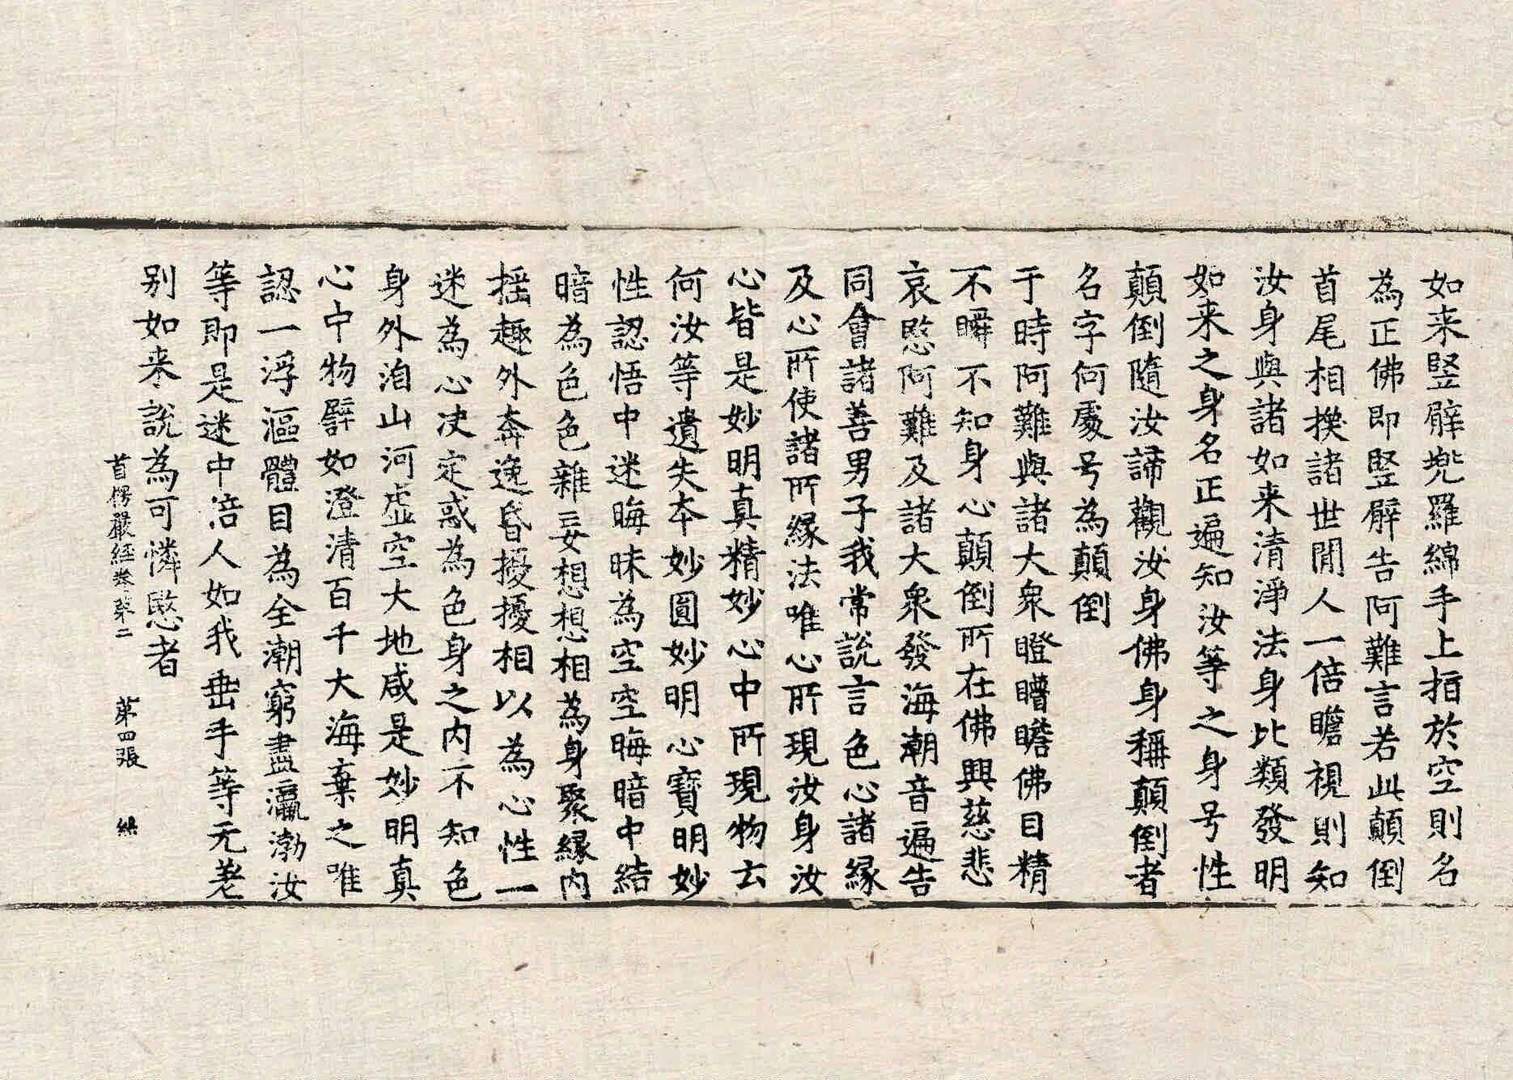 如来竪臂兠羅綿手上指於空則名
為正佛即竪臂告阿難言若此顛倒
首尾相換諸世間人一倍瞻視則知
汝身與諸如来清淨法身比類發明
如来之身名正遍知汝等之身号性
顛倒隨汝諦觀汝身佛身稱顛倒者
名字何處号為顛倒
于時阿難與諸大衆瞪瞢瞻佛目精
不瞬不知身心顛倒所在佛興慈悲
哀愍阿難及諸大衆發海潮音遍告
同會諸善男子我常說言色心諸緣
及心所使諸所緣法唯心所現汝身汝
心皆是妙明真精妙心中所現物云
何汝等遺失本妙圓妙明心寶明妙
性認悟中迷晦昧為空空晦暗中結
暗為色色雜妄想想相為身聚緣内
揺趣外奔逸昏擾擾相以為心性一
迷為心决定惑為色身之内不知色
身外洎山河虚空大地咸是妙明真
心中物譬如澄清百千大海棄之唯
認一浮漚體目為全潮窮盡瀛渤汝
等即是迷中倍人如我垂手等无差
别如来說為可憐愍者
首楞嚴經卷第二 第四張